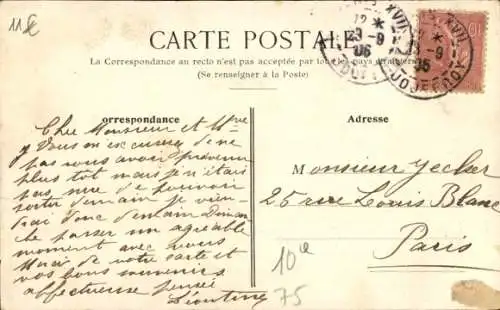 11 €
CARTE POSTALE
La Correspondance au recto n'est pas acceptée par tous les pays étrangers
(Se renseigner à la Poste)
PARIS XVIII
12 *
23 - 9
06
orrespondance
Adresse
Cher Monsieur et Mme
Vous m'excuserez de ne
pas vous avoir prévenu
plus tôt mais je n'étais
pas sure de pouvoir
sortir demain je vien-
drai donc demain Diman
che passer un agréable
moment avec vous
Merci de votre carte et
vos bons souvenirs
affectueuse pensée
Léontine
Monsieur Jecker
25 rue Louis Blanc
Paris
10e
75